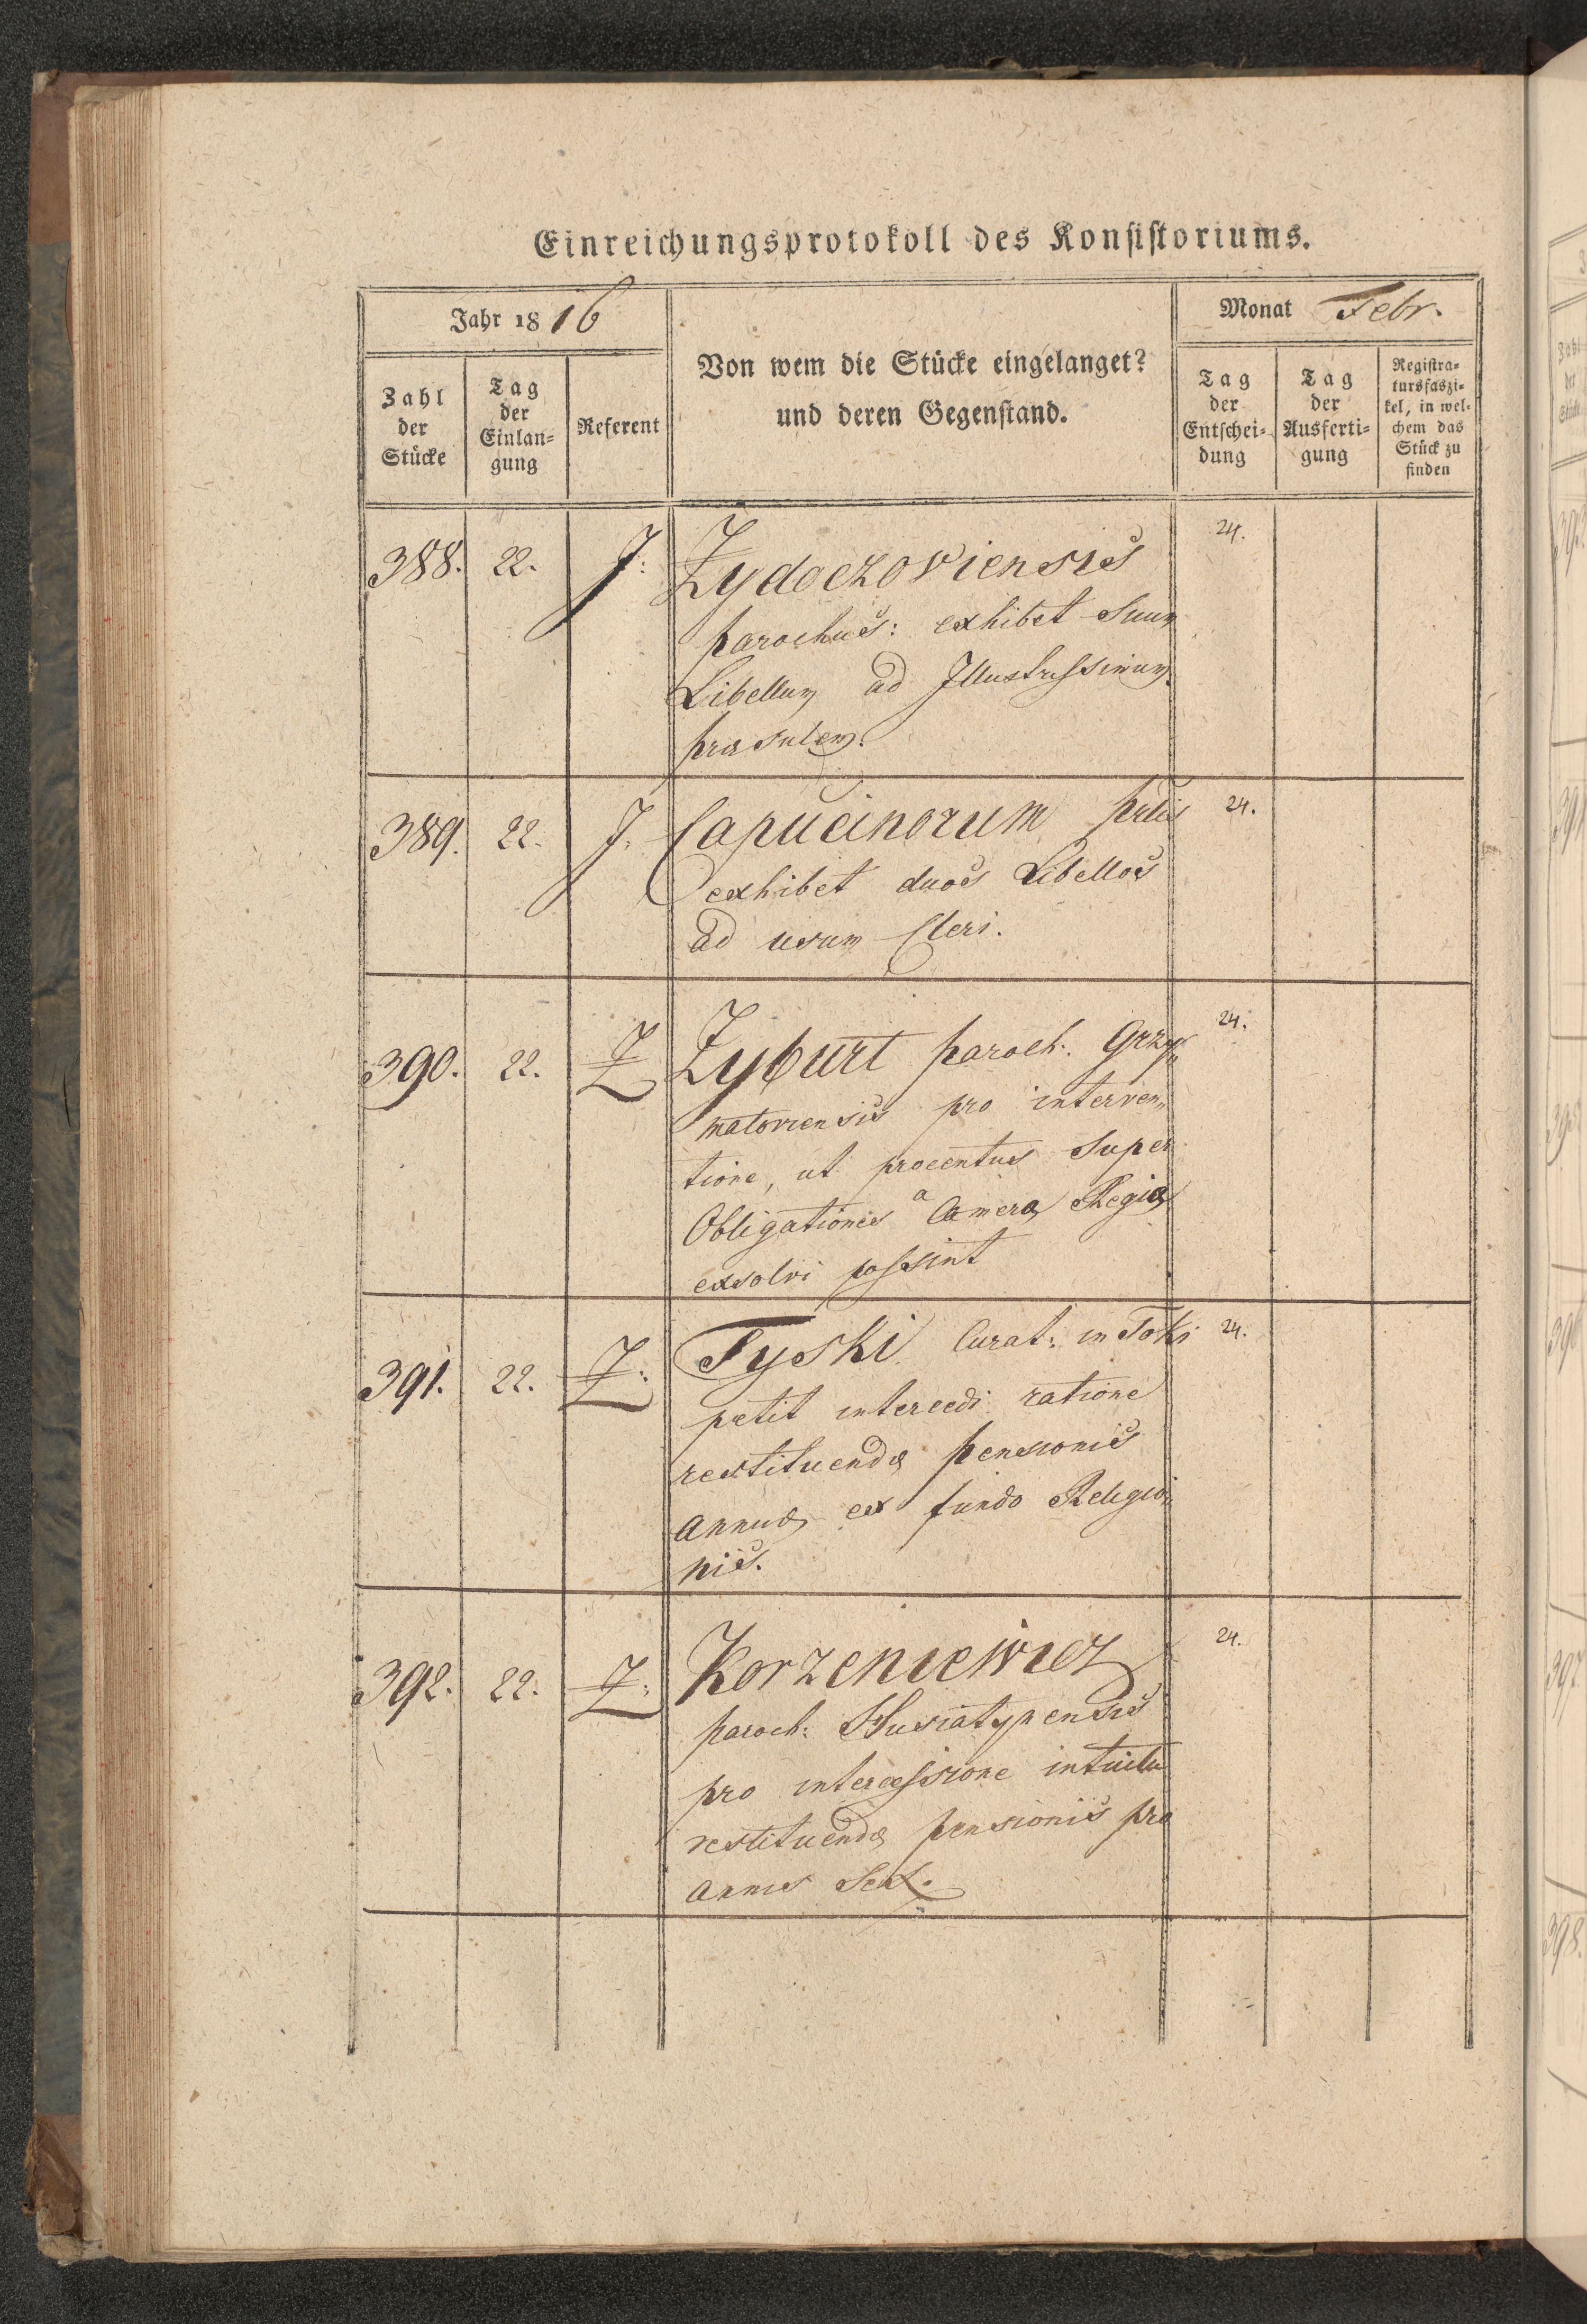 Einreichungsprotokoll des Konsistoriums.
Jahr 1816
Monat Febr.
Zahl der Stücke
Tag der Einlan=gung
Referent
Von wem die Stücke eingelanget?
und deren Gegenstand.
Tag der Entschei=dung
Tag der Ausferti=gung
Registra=tursfaszi=kel, in wel=chem das Stück zu finden
388. 22. J: Zydaczoviensis 24.
parochus: exhibet Suum
Libellum ad Illustrissimum
præsulem.
389. 22. J. Capucinorum 24.
exhibet duos Libellos
ad usum Cleri.
390. 22. Z Zyburt paroch. Grzy„ 24.
matoviensis pro interven„
tione, ut procentus Super
Obligationes a Camera Regia
exsolvi possint
391. 22. Z: Tyski Curat: in Toki 24.
petit intercedi ratione
restituendæ pensionis
annuæ ex fundo Religio„
nis.
392. 22. Z: Korzeniewicz 24.
paroch: Husiatynensis
pro intercessione intuitu
restituendæ pensionis pro
annis Sex.